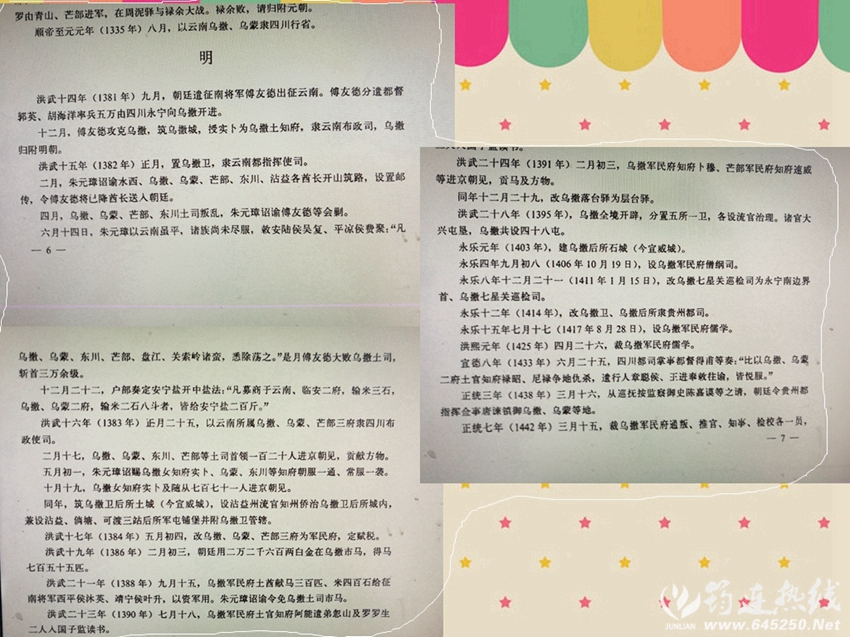 罗由青山、芒部进军，在周泥驿与禄余大战。禄余败，请归附元朝。
顺帝至元元年（1335年）八月，以云南乌撒、乌蒙隶四川行省。
明
洪武十四年（1381年）九月，朝廷遣征南将军傅友德出征云南。傅友德分遣都督
郭英、胡海洋率兵五万由四川永宁向乌撒开进。
十二月，傅友德攻克乌撒，筑乌撒城，授实卜为乌撒土知府，隶云南布政司，乌撒
归附明朝。
洪武十五年（1382年）正月，置乌撒卫，隶云南都指挥使司。
二月，朱元璋诏谕水西、乌撒、乌蒙、芒部、东川、沾益各酋长开山筑路，设置邮
传，令傅友德将已降酋长送入朝廷。
四月，乌撒、乌蒙、芒部、东川土司叛乱，朱元璋诏谕傅友德等会剿。
六月十四日，朱元璋以云南虽平，诸族尚未尽服，敕安陆侯吴复、平凉侯费聚：“凡
— 6 —
乌撒、乌蒙、东川、芒部、盘江、关索岭诸蛮，悉除荡之。”是月傅友德大败乌撒土司，
斩首三万余级。
十二月二十二，户部奏定安宁盐开中盐法：“凡募商于云南、临安二府，输米三石，
乌撒、乌蒙二府，输米二石八斗者，皆给安宁盐二百斤。”
洪武十六年（1383年）正月二十五，以云南所属乌撒、乌蒙、芒部三府隶四川布
政使司。
二月十七，乌撒、乌蒙、东川、芒部等土司首领一百二十人进京朝见，贡献方物。
五月初一，朱元璋诏赐乌撒女知府实卜、乌蒙、东川等知府朝服一通、常服一袭。
十月十九，乌撒女知府实卜及随从七百七十一人进京朝见。
同年，筑乌撒卫后所土城（今宣威城），设沾益州流官知州侨治乌撒卫后所城内，
兼设沾益、倘塘、可渡三站后所军屯铺堡并附乌撒卫管辖。
洪武十七年（1384年）五月初四，改乌撒、乌蒙、芒部三府为军民府，定赋税。
洪武十九年（1386年）二月初三，朝廷用二万二千六百两白金在乌撒市马，得马
七百五十五匹。
洪武二十一年（1388年）九月十五，乌撒军民府土酋献马三百匹、米四百石给征
南将军西平侯沐英、靖宁侯叶升，以资军用。朱元璋诏谕令免乌撒土司市马。
洪武二十三年（1390年）七月十八，乌撒军民府土官知府阿能遣弟忽山及罗罗生
二人入国子监读书。
二人入国子监读书。
洪武二十四年（1391年）二月初三，乌撒军民府知府卜穆、芒部军民府知府速感
等进京朝见，贡马及方物。
同年十二月二十九，改乌撒落台驿为层台驿。
洪武二十八年（1395年），乌撒全境开辟，分置五所一卫，各设流官治理。诸官大
兴屯垦，乌撒共设四十八屯。
永乐元年（1403年），建乌撒后所石城（今宣威城）。
永乐四年九月初八（1406年10月19日），设乌撒军民府僧纲司。
永乐八年十二月二十一（1411年1月15日），改乌撒七星关巡检司为永宁南边界
首、乌撒七星关巡检司。
永乐十二年（1414年），改乌撒卫、乌撒后所隶贵州都司。
永乐十五年七月十七（1417年8月28日），设乌撒军民府儒学。
洪熙元年（1425年）四月二十六，裁乌撒军民府儒学。
宣德八年（1433年）六月二十五，四川都司掌事都督得甫等奏：“比以乌撒、乌蒙
二府土官知府禄昭、尼禄争地仇杀，遣行人章聪侯、王进奉敕往谕，皆悦服。”
正统三年（1438年）三月十六，从巡抚按监察御史陈嘉谟等之请，朝廷令贵州都
指挥佥事唐谏镇御乌撒、乌蒙等地。
正统七年（1442年）三月十五，裁乌撒军民府通叛、推官、知事、检校各一员，
— 7 —
筠连热线
JUNLIAN
www.645250.Net